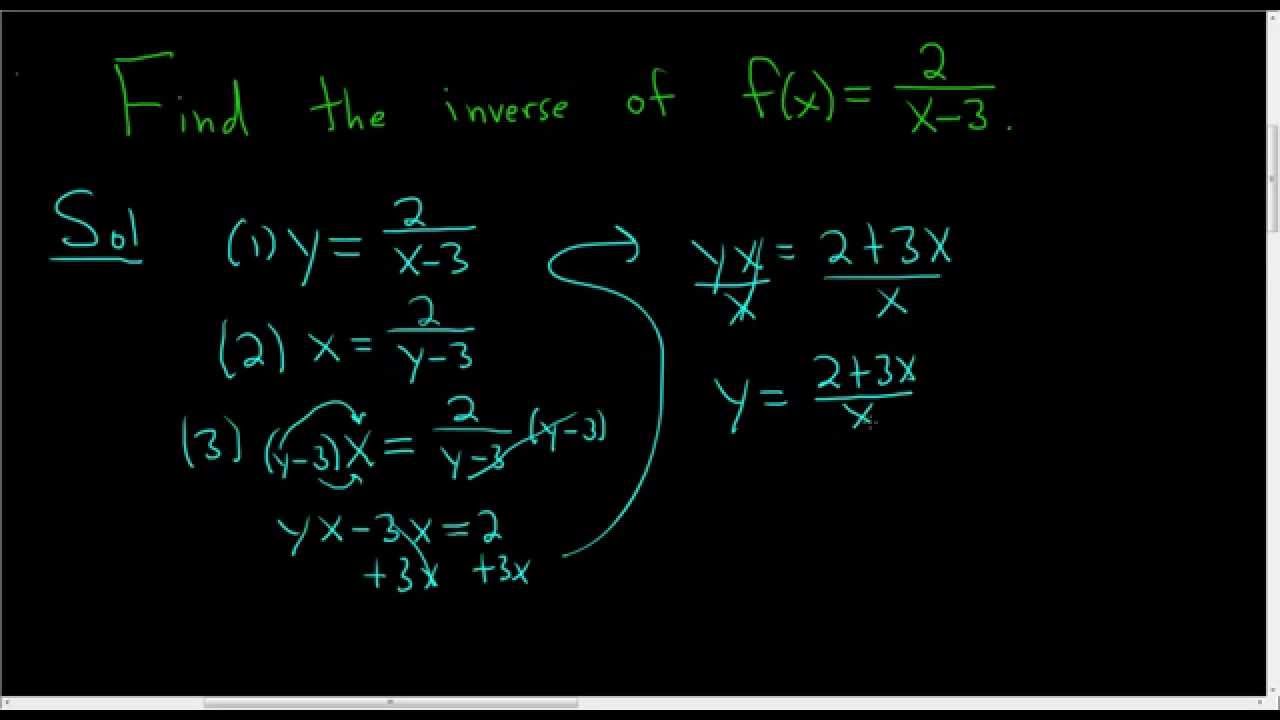 Find the inverse of f(x) = 2/(x-3).
Sol
(1) y = 2/(x-3)
(2) x = 2/(y-3)
(3) (y-3)x = 2/(y-3) (y-3)
yx - 3x = 2
+3x +3x
yx/x = (2+3x)/x
y = (2+3x)/x